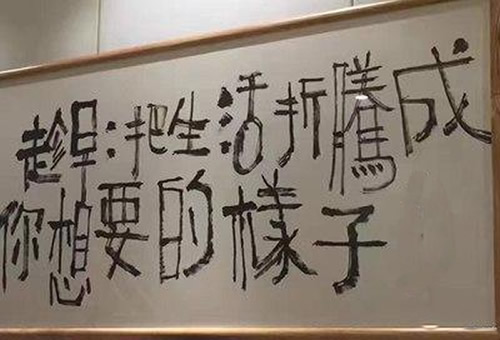 趁早:把生活折騰成
你想要的樣子